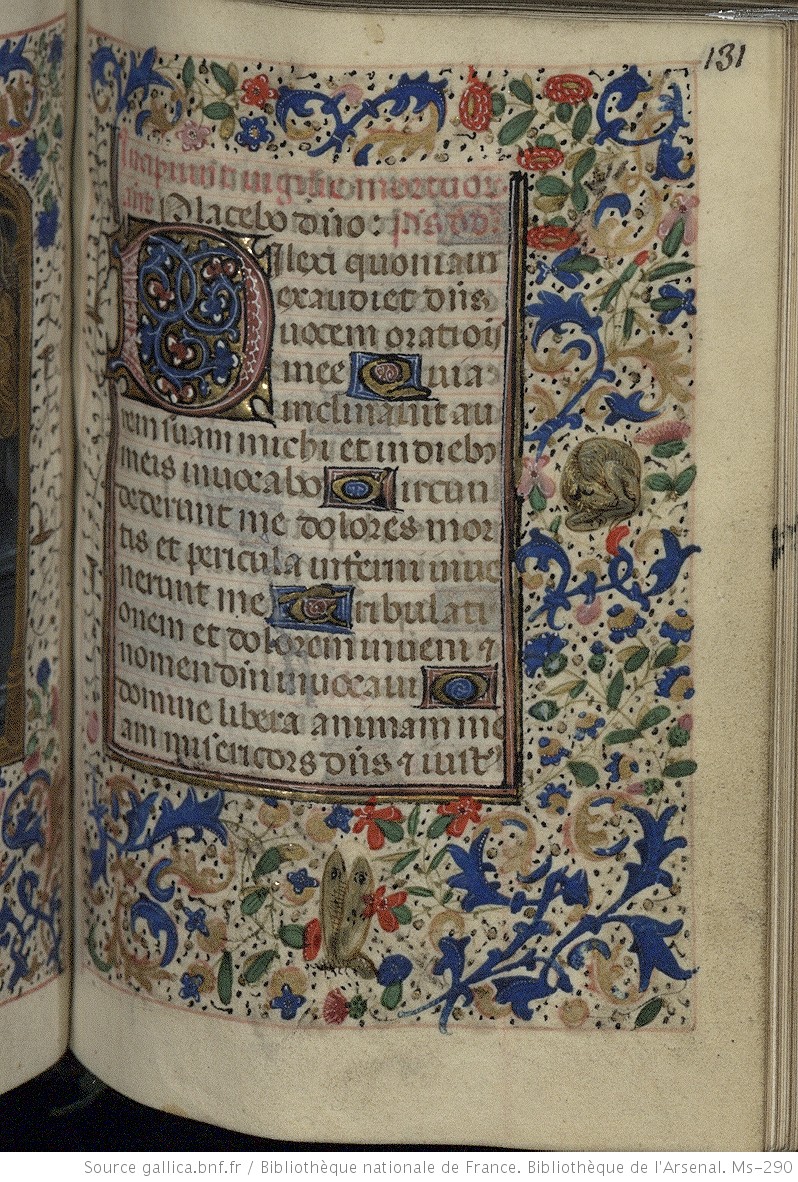 131
Incipiunt vigilie mortuor
ant Placebo dno: ps dd
Dilexi quoniam
exaudiet dns
uocem orationis
mee Quia
inclinauit au
rem suam michi et in dieb3
meis inuocabo Circun
dederunt me dolores mor
tis et pericula inferni inue
nerunt me Tribulati
onem et dolorem inueni ⁊
nomen dni inuocaui O
domine libera animam me
am misericors dns ⁊ iust9
Source gallica.bnf.fr / Bibliothèque nationale de France. Bibliothèque de l'Arsenal. Ms-290